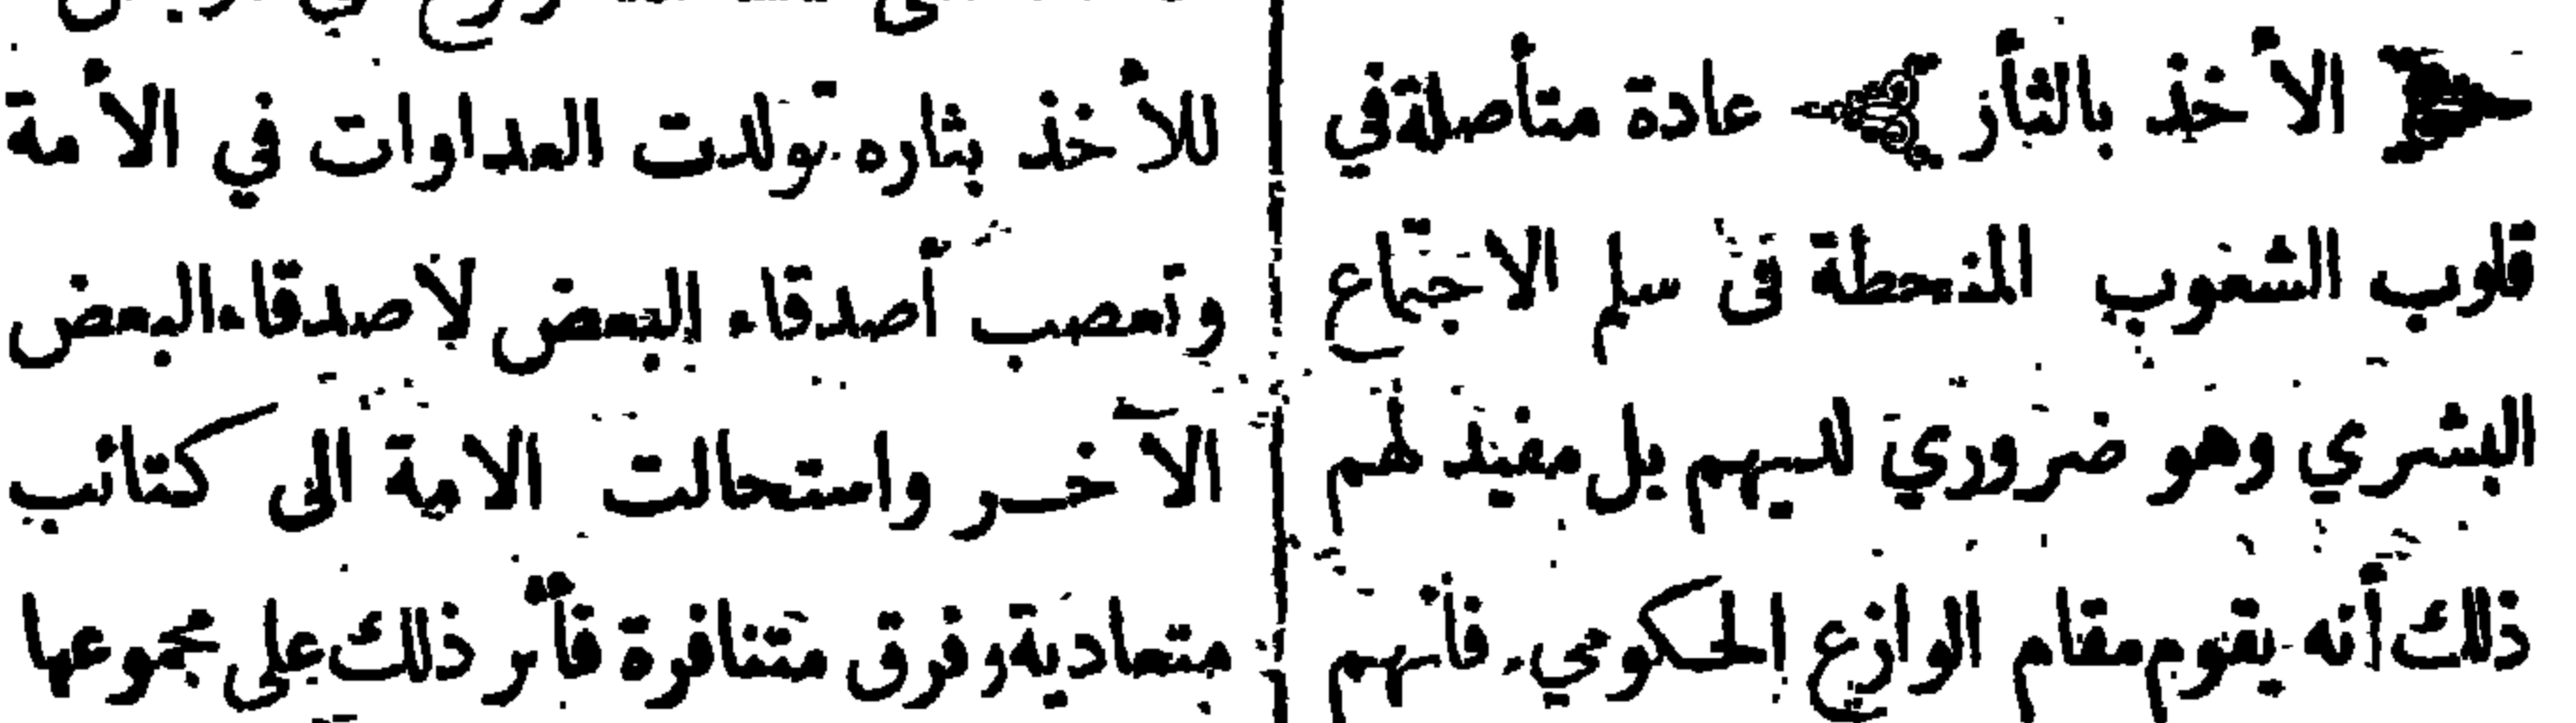 الأخذ بالثأر عادة متأصلة في
قلوب الشعوب المنحطة في سلم الاجتماع
البشري وهو ضروري لديهم بل مفيد لهم
ذلك أنه يقوم مقام الوازع الحكومي. فأنهم
للأخذ بثاره تولدت العداوات في الأمة
وتعصب أصدقاء البعض لاصدقاء البعض
الآخر واستحالت الامة الى كتائب
متعادية وفرق متنافرة فأثر ذلك على مجموعها